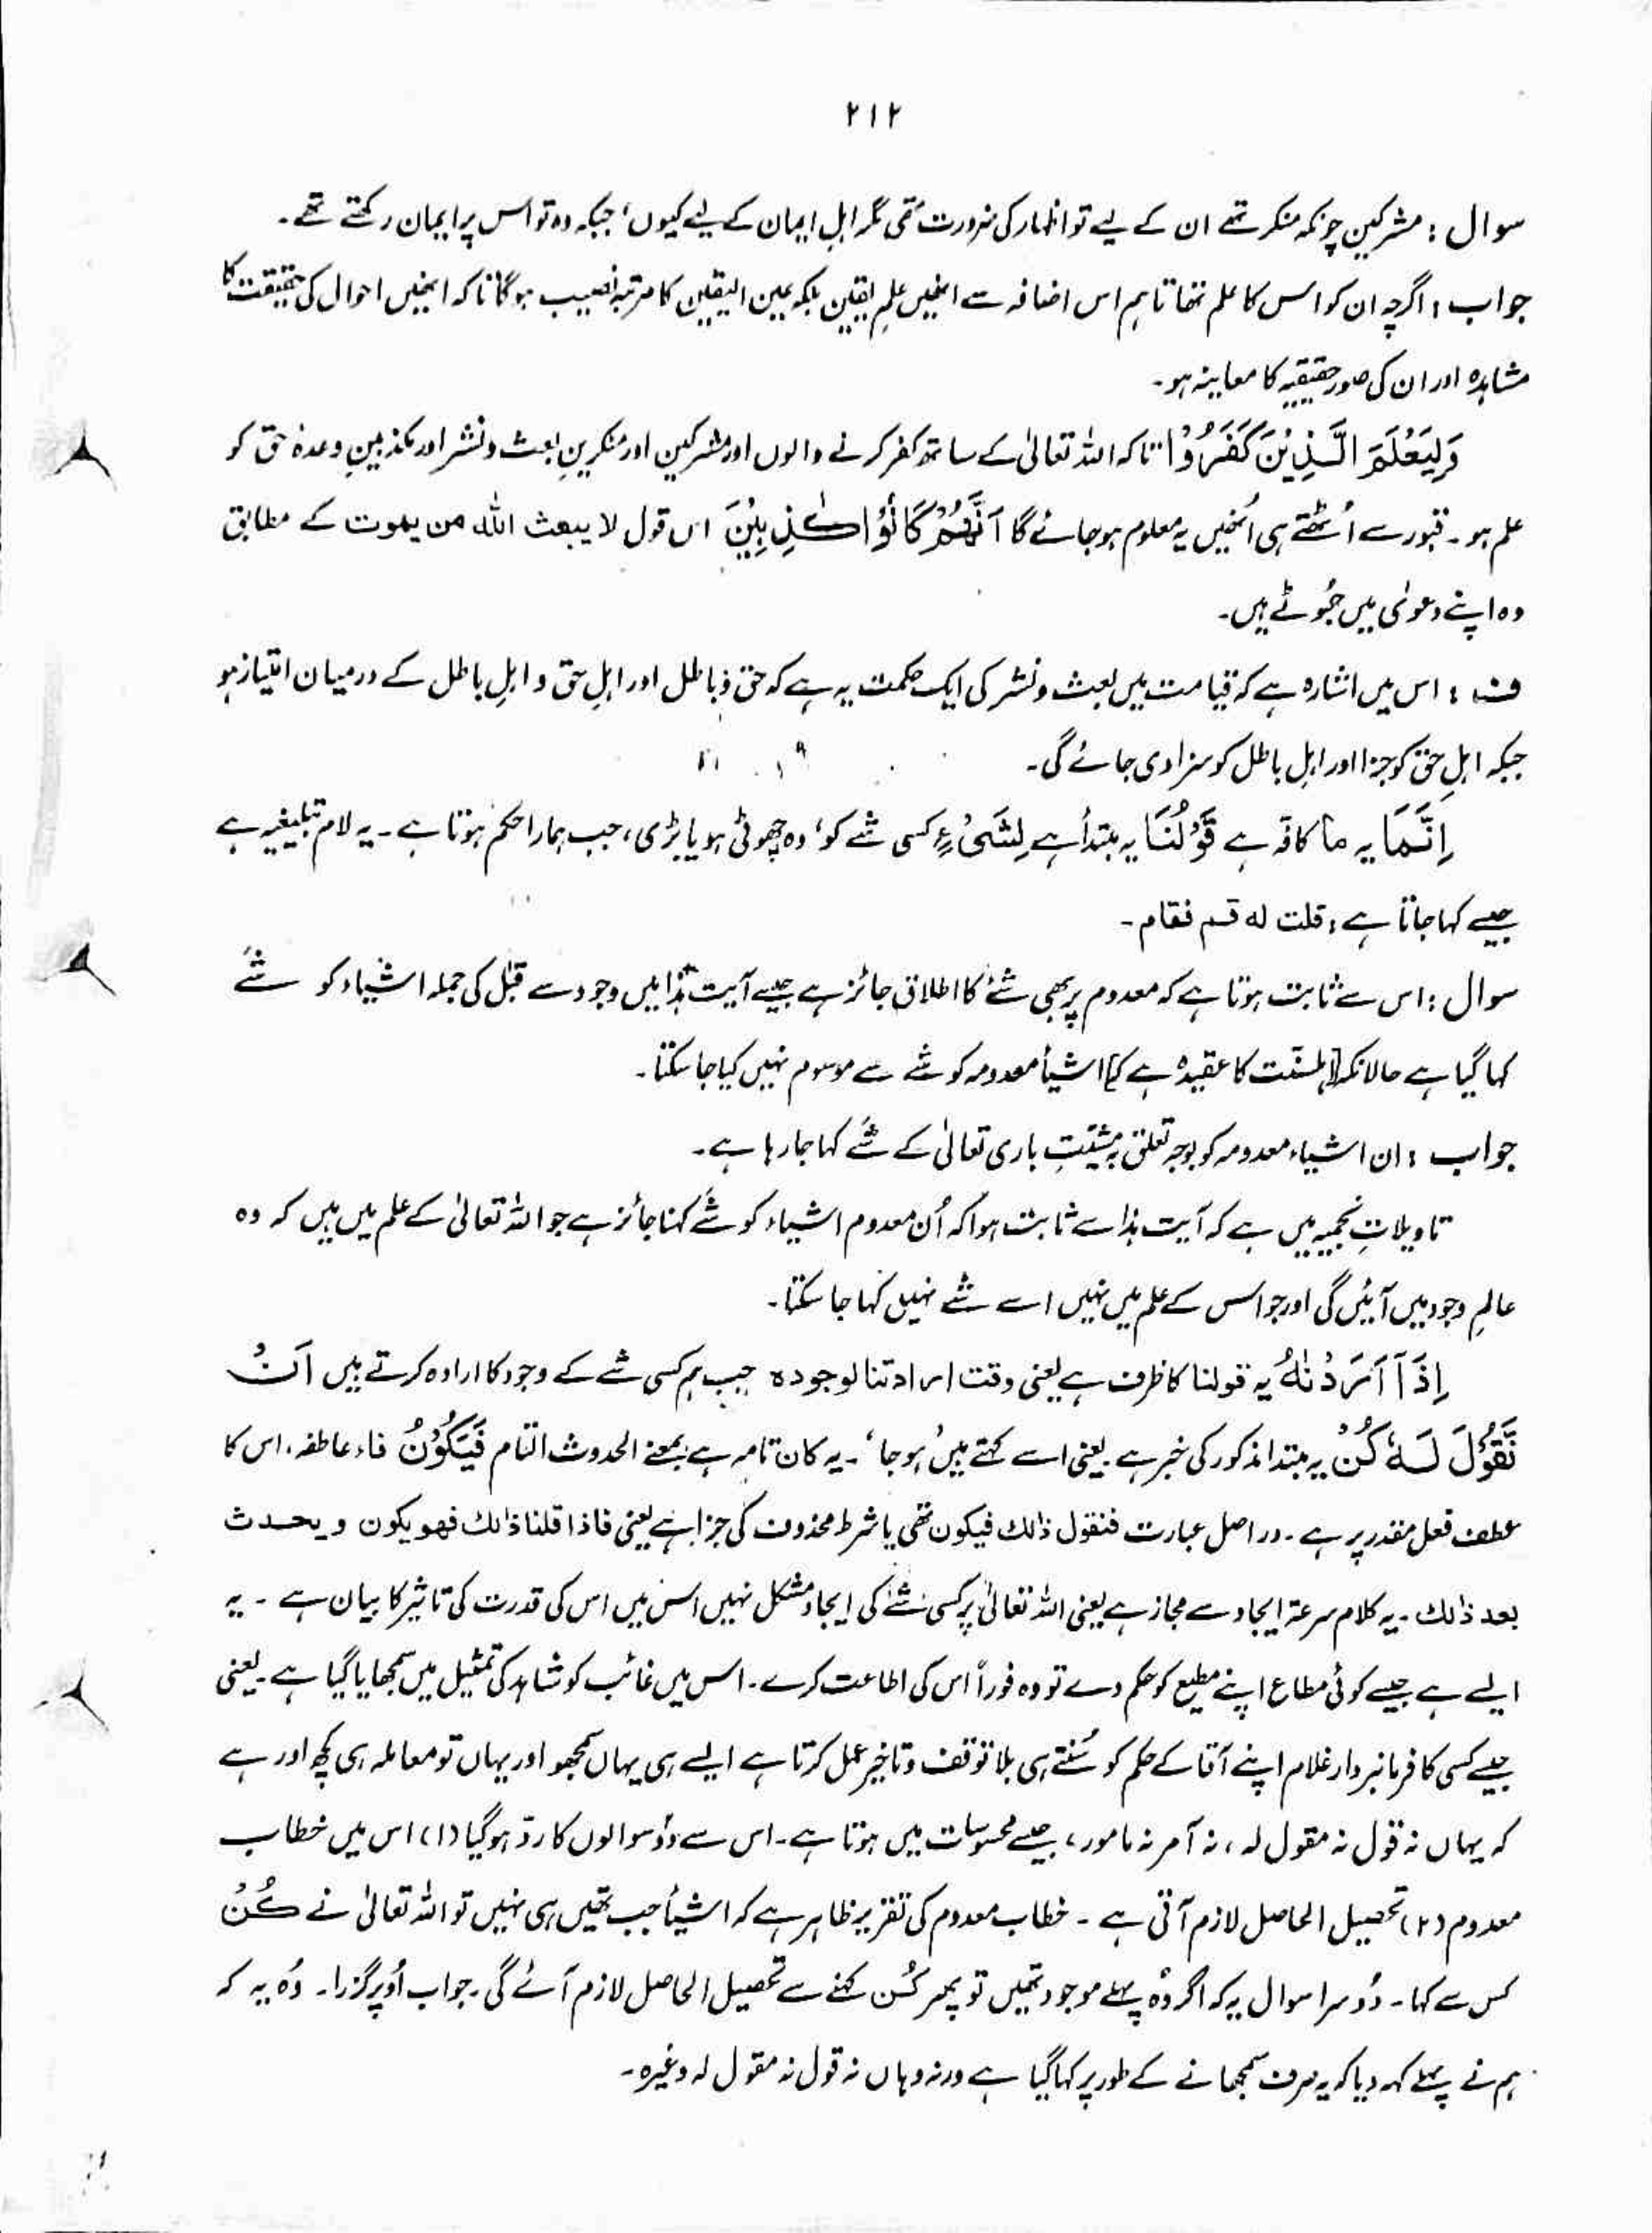 ۲۱۲
سوال : مشرکین چونکہ منکر تھے ان کے لیے تو اظہار کی ضرورت تھی مگر اہلِ ایمان کے لیے کیوں، جبکہ وہ تو اس پر ایمان رکھتے تھے۔
جواب : اگرچہ ان کو اس کا علم تھا تاہم اس اضافہ سے انھیں علمِ یقین بلکہ عین الیقین کا مرتبہ نصیب ہوگا تاکہ انھیں احوال کی حقیقت کا
مشاہدہ اور ان کی صور حقیقیہ کا معاینہ ہو۔
وَلِيَعْلَمَ الَّذِيْنَ كَفَرُوْا تاکہ اللہ تعالیٰ کے ساتھ کفر کرنے والوں اور مشرکین اور منکرینِ بعث و نشر اور مکذبینِ وعدۂ حق کو
علم ہو۔ قبور سے اُٹھتے ہی اُنھیں یہ معلوم ہو جائے گا اَنَّهُمْ كَانُوْا كٰذِبِيْنَ اس قول لا یبعث اللہ من یموت کے مطابق
وہ اپنے دعوٰی میں جُھوٹے ہیں۔
ف : اس میں اشارہ ہے کہ قیامت میں بعث و نشر کی ایک حکمت یہ ہے کہ حق و باطل اور اہلِ حق و اہلِ باطل کے درمیان امتیاز ہو
جبکہ اہلِ حق کو جزا اور اہلِ باطل کو سزا دی جائے گی۔
اِنَّمَا یہ ما کافہ ہے قَوْلُنَا یہ مبتدأ ہے لِشَیْءٍ کسی شے کو، وہ چھوٹی ہو یا بڑی، جب ہمارا حکم ہوتا ہے۔ یہ لام تبلیغیہ ہے
جیسے کہا جاتا ہے : قلت له قم فقام۔
سوال : اس سے ثابت ہوتا ہے کہ معدوم پر بھی شے کا اطلاق جائز ہے جیسے آیت ہٰذا میں وجود سے قبل کی جملہ اشیاء کو شے
کہا گیا ہے حالانکہ اہلسنّت کا عقیدہ ہے کہ اشیأ معدومہ کو شے سے موسوم نہیں کیا جا سکتا۔
جواب : ان اشیاء معدومہ کو بوجہ تعلق بہ مشیّتِ باری تعالیٰ کے شے کہا جا رہا ہے۔
تاویلاتِ نجمیہ میں ہے کہ آیت ہذا سے ثابت ہوا کہ اُن معدوم اشیاء کو شے کہنا جائز ہے جو اللہ تعالیٰ کے علم میں ہیں کہ وہ
عالمِ وجود میں آئیں گی اور جو اس کے علم میں نہیں اسے شے نہیں کہا جا سکتا۔
اِذَآ اَرَدْنٰهُ یہ قولنا کا ظرف ہے یعنی وقت ارادتنا لوجودہ جب ہم کسی شے کے وجود کا ارادہ کرتے ہیں اَنْ
نَّقُوْلَ لَهٗ كُنْ یہ مبتدا مذکور کی خبر ہے یعنی اسے کہتے ہیں 'ہو جا'۔ یہ کان تامہ ہے بمعنے الحدوث التام فَيَكُوْنُ فاء عاطفہ، اس کا
عطف فعل مقدر پر ہے۔ در اصل عبارت فنقول ذالك فیکون تھی یا شرط محذوف کی جزا ہے یعنی فاذا قلنا ذالك فهو یکون و یحدث
بعد ذالك۔ یہ کلام سرعۃ ایجاد سے مجاز ہے یعنی اللہ تعالیٰ پر کسی شے کی ایجاد مشکل نہیں اس میں اس کی قدرت کی تاثیر کا بیان ہے۔ یہ
ایسے ہے جیسے کوئی مطاع اپنے مطیع کو حکم دے تو وہ فوراً اس کی اطاعت کرے۔ اس میں غائب کو شاہد کی تمثیل میں سمجھایا گیا ہے۔ یعنی
جیسے کسی کا فرمانبردار غلام اپنے آقا کے حکم کو سُنتے ہی بلا توقف و تاخیر عمل کرتا ہے ایسے ہی یہاں سمجھو اور یہاں تو معاملہ ہی کچھ اور ہے
کہ یہاں نہ قول نہ مقول لہ، نہ آمر نہ مامور، جیسے محسوسات میں ہوتا ہے۔ اس سے دو سوالوں کا ردّ ہو گیا (۱) اس میں خطاب
معدوم (۲) تحصیل الحاصل لازم آتی ہے۔ خطاب معدوم کی تقریر ظاہر ہے کہ اشیأ جب تھیں ہی نہیں تو اللہ تعالیٰ نے کُنْ
کس سے کہا۔ دُوسرا سوال یہ کہ اگر وُہ پہلے موجود تھیں تو پھر کُن کہنے سے تحصیل الحاصل لازم آئے گی۔ جواب اُوپر گزرا۔ وُہ یہ کہ
ہم نے پہلے کہہ دیا کہ یہ صرف سمجھانے کے طور پر کہا گیا ہے ورنہ وہاں نہ قول نہ مقول لہ وغیرہ۔